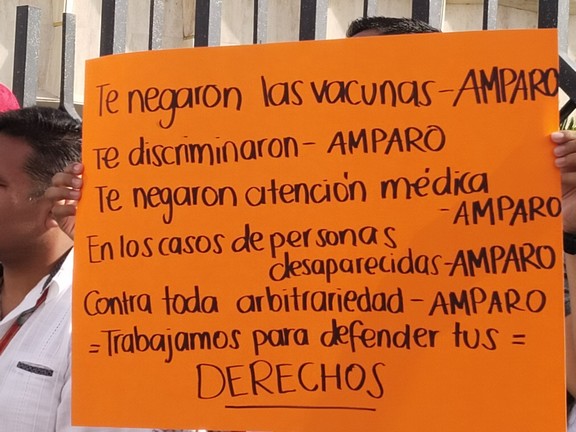 Te negaron las vacunas - AMPARO
Te discriminaron - AMPARO
Te negaron atención médica
- AMPARO
En los casos de personas
desaparecidas - AMPARO
Contra toda arbitrariedad - AMPARO
= Trabajamos para defender tus =
DERECHOS